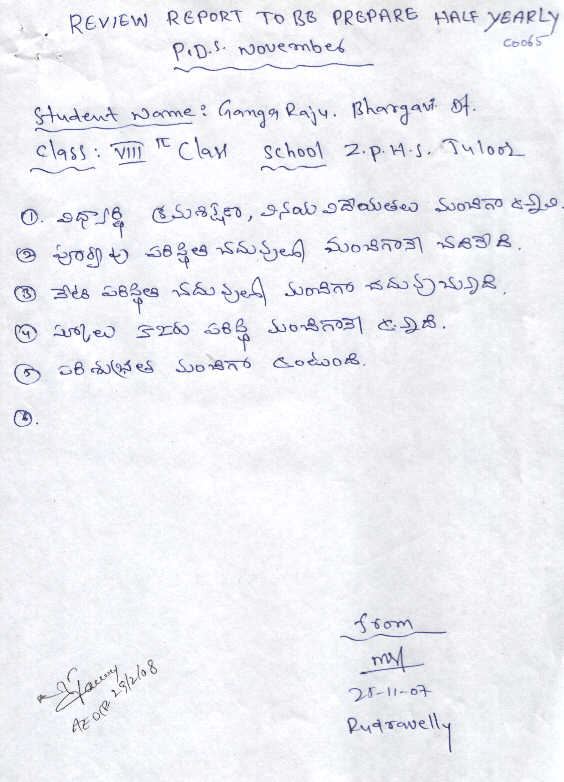 REVIEW REPORT TO BE PREPARE HALF YEARLY
P.D.S. November
C0065
Student Name: Ganga Raju. Bhargavi D/.
Class: VIII th Class School Z.P.H.S. Juloor
①. విద్యార్థి క్రమశిక్షణ, వినయ విదేయతలు మంచిగా ఉన్నవి.
② పూర్వపు పరిస్థితి చదువులో మంచిగానే చదివేది.
③ నేటి పరిస్థితి చదువులో మంచిగా చదువుచున్నది.
④ స్కూలు హాజరు పరిస్థితి మంచిగానే ఉన్నది.
⑤ పరిశుభ్రత మంచిగా ఉంటుంది.
⑥.
from
28-11-07
Rudravelly
29/2/08